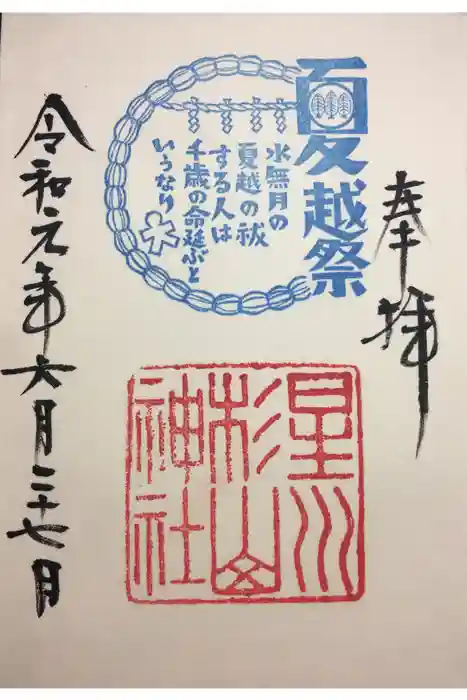 奉拝
夏越祭
水無月の
夏越の祓
する人は
千歳の命延ぶと
いうなり
星川
杉山
神社
令和元年六月二十七日